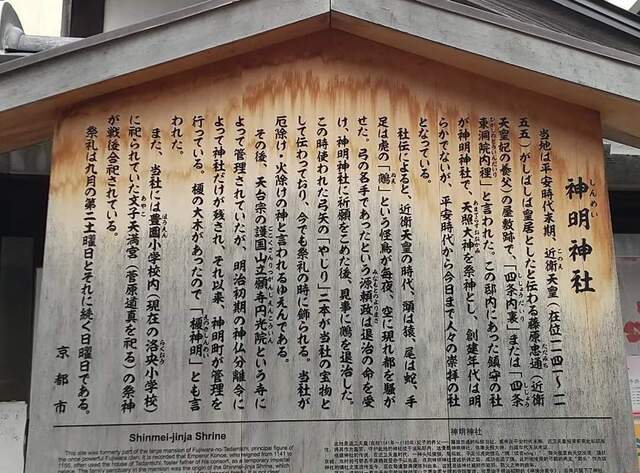 神明神社
しんめい
当地は平安時代末期、近衛天皇(在位一一四一〜一一
五五)がしばしば皇居としたと伝わる藤原忠通(近衛
天皇妃の養父)の屋敷跡で、「四条内裏」または「四条
東洞院内裡」と言われた。この邸内にあった鎮守の社
が神明神社で、天照大神を祭神とし、創建年代は明
らかでないが、平安時代から今日まで人々の崇拝の社
となっている。
社伝によると、近衛天皇の時代、頭は猿、尾は蛇、手
足は虎の「鵺」という怪鳥が毎夜、空に現れ都を騒が
せた。弓の名手であったという源頼政は退治の命を受
け、神明神社に祈願をこめた後、見事に鵺を退治した。
この時使われた弓矢の「やじり」二本が当社の宝物と
して伝わっており、今でも祭礼の時に飾られる。当社が
厄除け・火除けの神と言われるゆえんである。
その後、天台宗の護国山立願寺円光院という寺に
よって管理されていたが、明治初期の神仏分離令に
よって神社だけが残され、それ以来、神明町が管理を
行っている。榎の大木があったので「榎神明」とも言
われた。
また、当社には豊園小学校内(現在の洛央小学校)
に祀られていた文子天満宮(菅原道真を祀る)の祭神
が戦後合祀されている。
祭礼は九月の第二土曜日とそれに続く日曜日である。
京都市
Shinmei-jinja Shrine
This site was formerly part of the large mansion of Fujiwara-no-Tadamichi, principal figure of
the once powerful Fujiwara clan. It is recorded that Emperor Konoe, who reigned from 1141 to
1155, often used the house of Tadamichi, foster father of his consort, as a temporary imperial
神明神社